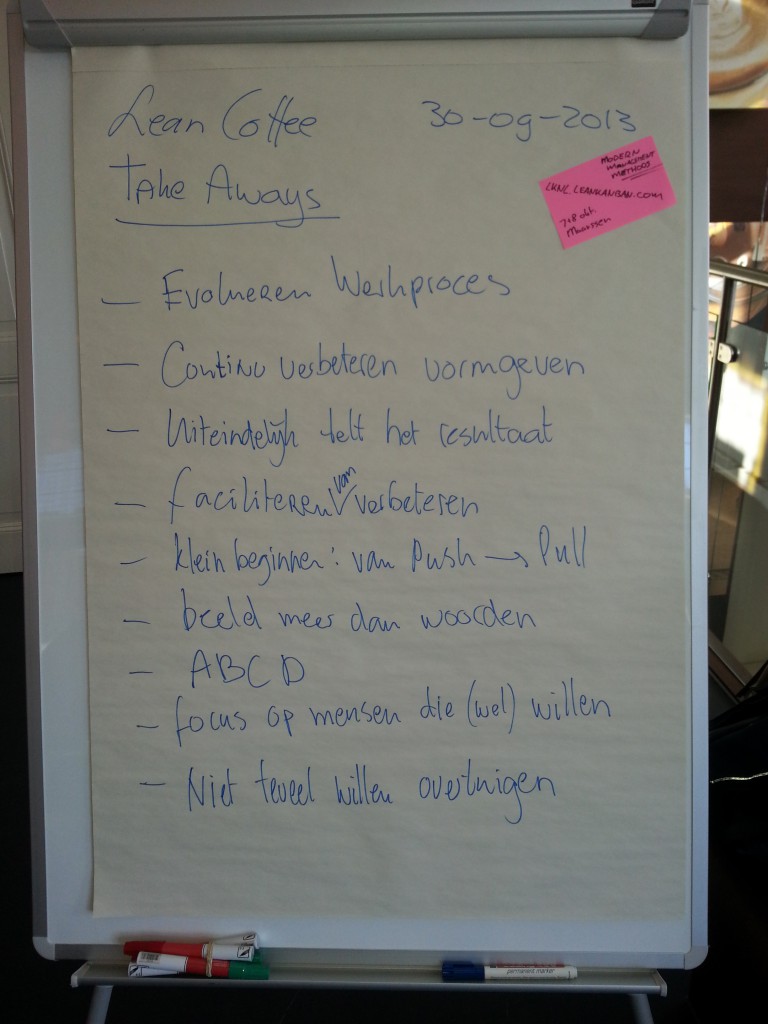 Lean Coffee 30-09-2013
Take Aways
MODERN
MANAGEMENT
METHODS
LKNL.LEANKANBAN.COM
7+8 okt.
Maarssen
— Evolueren Werkproces
— Continu verbeteren vormgeven
— Uiteindelijk telt het resultaat
— faciliteren van verbeteren
— klein beginnen: van Push → Pull
— beeld meer dan woorden
— ABCD
— focus op mensen die (wel) willen
— Niet teveel willen overtuigen
permanent marker